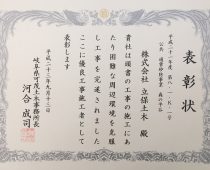 表彰状
平成二十一年度 第八-一K-一二号
公共 通常砂防事業 森の下谷
株式会社 立保土木 殿
貴社は頭書の工事の施工にあ
たり困難な周辺環境を克服
し工事を完遂されました
ここに優良工事施工者として
表彰します
平成二十三年九月十三日
岐阜県可茂土木事務所長
河合成司